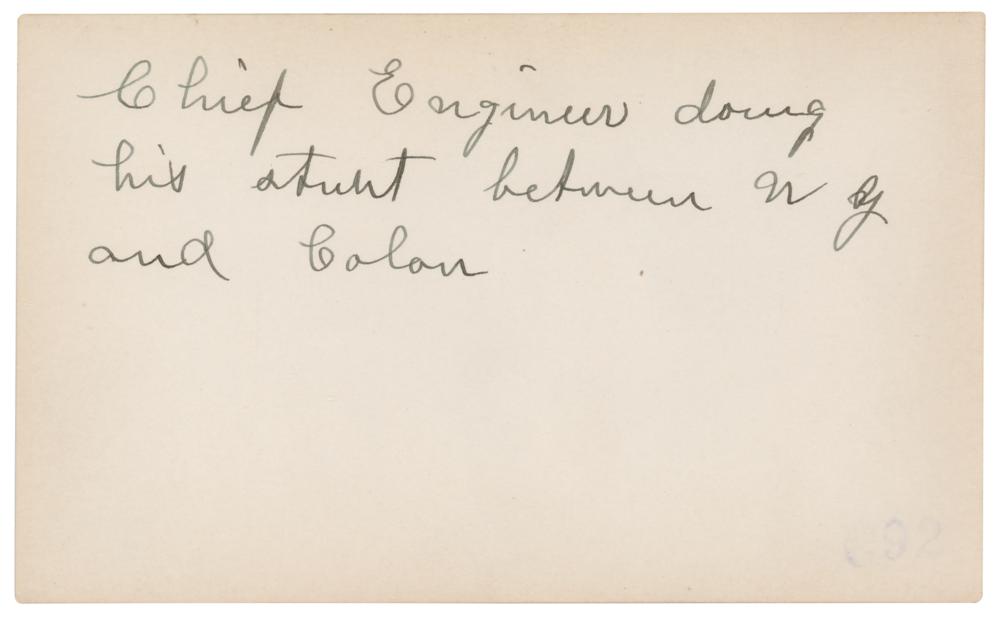 Chief Engineer doing
his stunt between N Y
and Colon